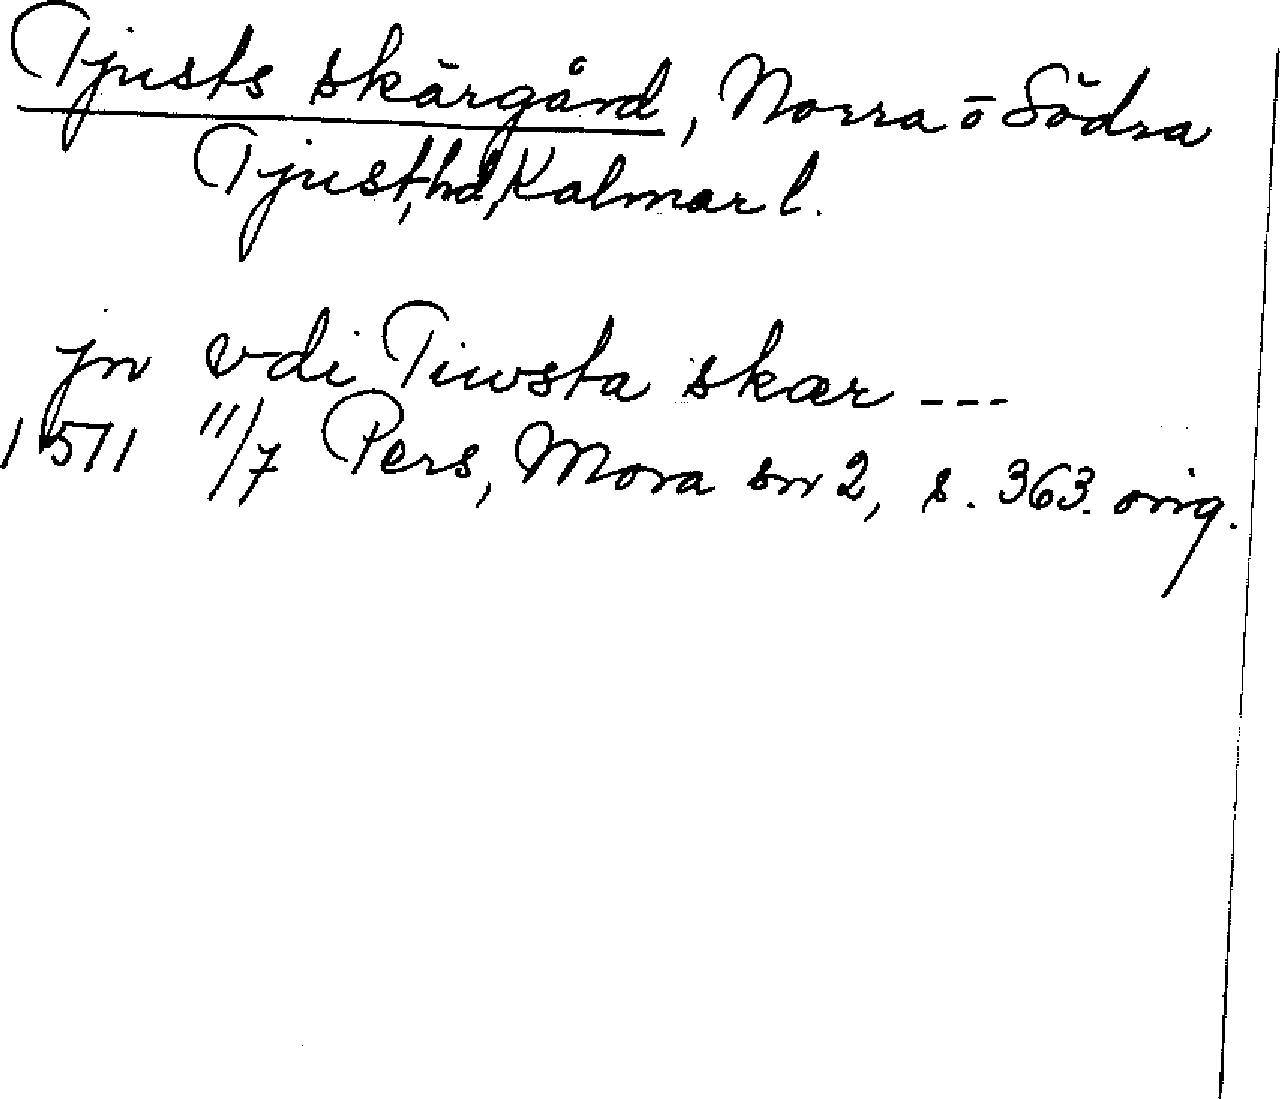 Tjusts skärgård, Norra o Södra
Tjust, hd, Kalmar l.
jn vdi Tiwsta skær ---
1571 11/7 Pers, Mora sn 2, s. 363. orig.